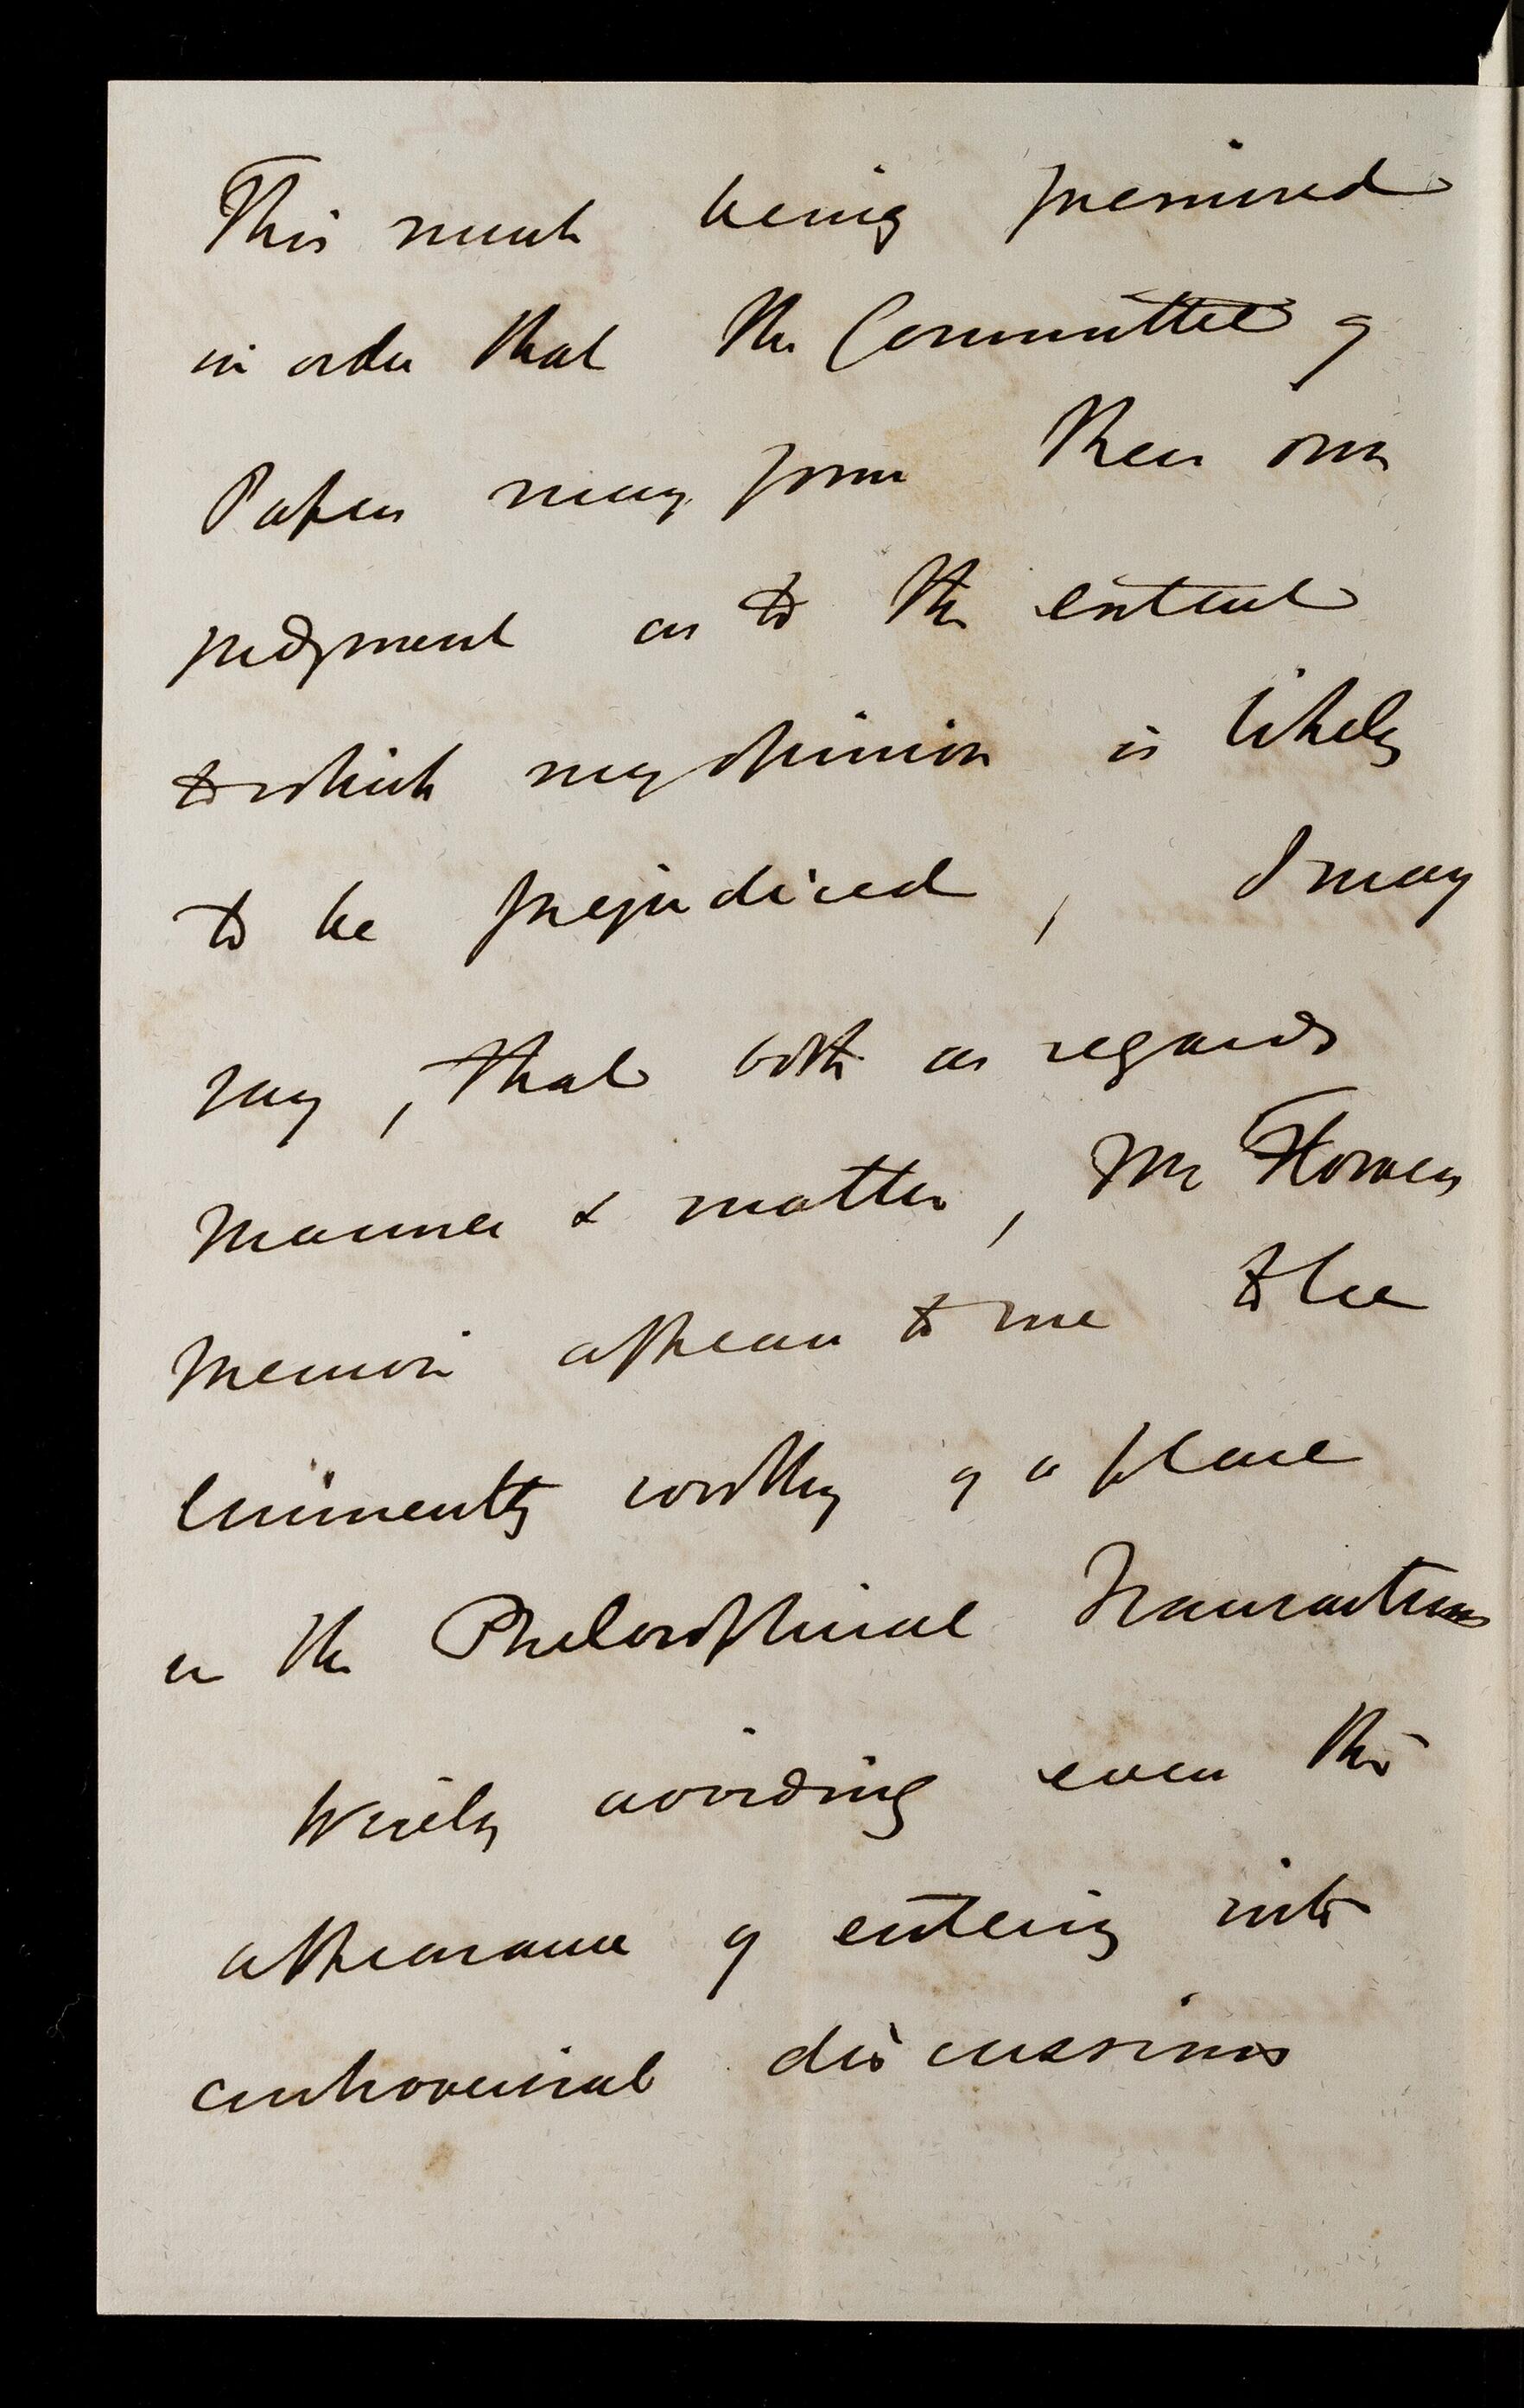 This much being premised
in order that the Committee of
Papers may form their own
judgment as to the extent
to which my opinion is likely
to be prejudiced, I may
say, that both as regards
manner & matter, Mr Flowers
memoir appears to me to be
eminently worthy of a place
in the Philosophical Transactions
Wisely avoiding even the
appearance of entering into
controversial discussions